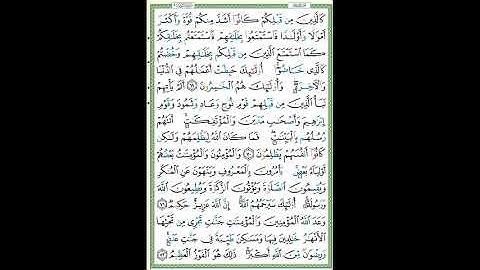 كَٱلَّذِينَ مِن قَبْلِكُمْ كَانُوٓا۟ أَشَدَّ مِنكُمْ قُوَّةً وَأَكْثَرَ
أَمْوَٰلًا وَأَوْلَٰدًا فَٱسْتَمْتَعُوا۟ بِخَلَٰقِهِمْ فَٱسْتَمْتَعْتُم بِخَلَٰقِكُمْ
كَمَا ٱسْتَمْتَعَ ٱلَّذِينَ مِن قَبْلِكُم بِخَلَٰقِهِمْ وَخُضْتُمْ
كَٱلَّذِى خَاضُوٓا۟ أُو۟لَٰٓئِكَ حَبِطَتْ أَعْمَٰلُهُمْ فِى ٱلدُّنْيَا
وَٱلْءَاخِرَةِ وَأُو۟لَٰٓئِكَ هُمُ ٱلْخَٰسِرُونَ ٦٩ أَلَمْ يَأْتِهِمْ
نَبَأُ ٱلَّذِينَ مِن قَبْلِهِمْ قَوْمِ نُوحٍ وَعَادٍ وَثَمُودَ وَقَوْمِ
إِبْرَٰهِيمَ وَأَصْحَٰبِ مَدْيَنَ وَٱلْمُؤْتَفِكَٰتِ أَتَتْهُمْ
رُسُلُهُم بِٱلْبَيِّنَٰتِ فَمَا كَانَ ٱللَّهُ لِيَظْلِمَهُمْ وَلَٰكِن
كَانُوٓا۟ أَنفُسَهُمْ يَظْلِمُونَ ٧٠ وَٱلْمُؤْمِنُونَ وَٱلْمُؤْمِنَٰتُ بَعْضُهُمْ
أَوْلِيَآءُ بَعْضٍ يَأْمُرُونَ بِٱلْمَعْرُوفِ وَيَنْهَوْنَ عَنِ ٱلْمُنكَرِ
وَيُقِيمُونَ ٱلصَّلَوٰةَ وَيُؤْتُونَ ٱلزَّكَوٰةَ وَيُطِيعُونَ ٱللَّهَ
وَرَسُولَهُۥٓ أُو۟لَٰٓئِكَ سَيَرْحَمُهُمُ ٱللَّهُ إِنَّ ٱللَّهَ عَزِيزٌ حَكِيمٌ ٧١
وَعَدَ ٱللَّهُ ٱلْمُؤْمِنِينَ وَٱلْمُؤْمِنَٰتِ جَنَّٰتٍ تَجْرِى مِن تَحْتِهَا
ٱلْأَنْهَٰرُ خَٰلِدِينَ فِيهَا وَمَسَٰكِنَ طَيِّبَةً فِى جَنَّٰتِ عَدْنٍ
وَرِضْوَٰنٌ مِّنَ ٱللَّهِ أَكْبَرُ ذَٰلِكَ هُوَ ٱلْفَوْزُ ٱلْعَظِيمُ ٧٢